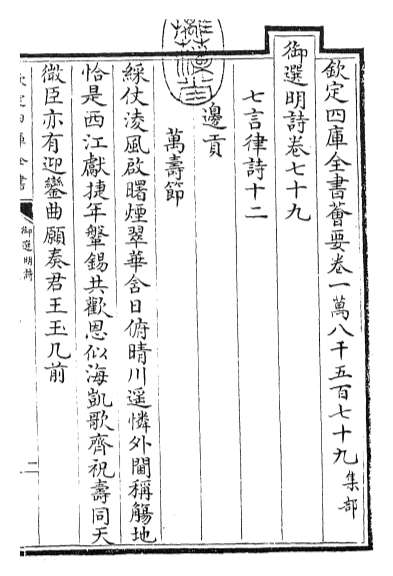 欽定四庫全書薈要卷一萬八千五百七十九集部
御選明詩卷七十九
七言律詩十二
邊貢
萬壽節
綵仗淩風啟曙煙翠華含日俯晴川遥憐外閫稱觴地
恰是西江獻捷年鞶錫共歡恩似海凱歌齊祝壽同天
微臣亦有迎鑾曲願奏君王玉几前
欽定四庫全書
御選明詩
二